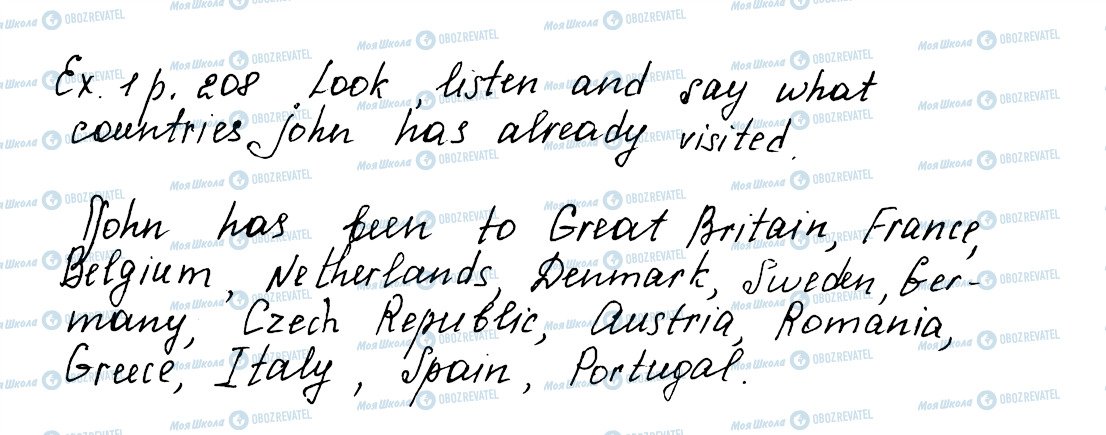 Ex. 1 p. 208. Look, listen and say what
countries John has already visited.
John has been to Great Britain, France,
Belgium, Netherlands, Denmark, Sweden, Ger-
many, Czech Republic, Austria, Romania,
Greece, Italy, Spain, Portugal.